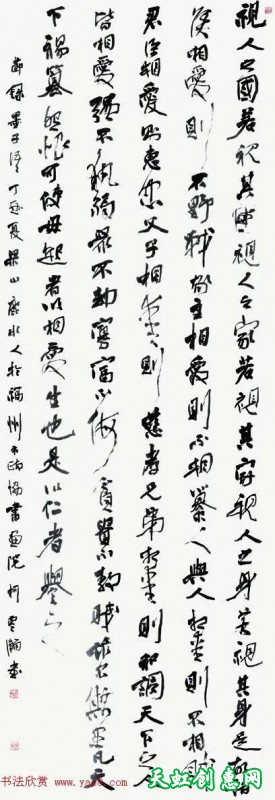 視人之國若視其國視人之家若視其家視人之身若視其身是故諸
侯相愛則不野戰家主相愛則不相篡人與人相愛則不相賊
君臣相愛則惠忠父子相愛則慈孝兄弟相愛則和調天下之人
皆相愛強不執弱眾不劫寡富不侮貧貴不敖賤詐不欺愚凡天
下禍篡怨恨可使毋起者以相愛生也是以仁者譽之
節錄墨子語丁亥夏梁山人於福州市政協書畫院書
书法欣赏
天虹创意网